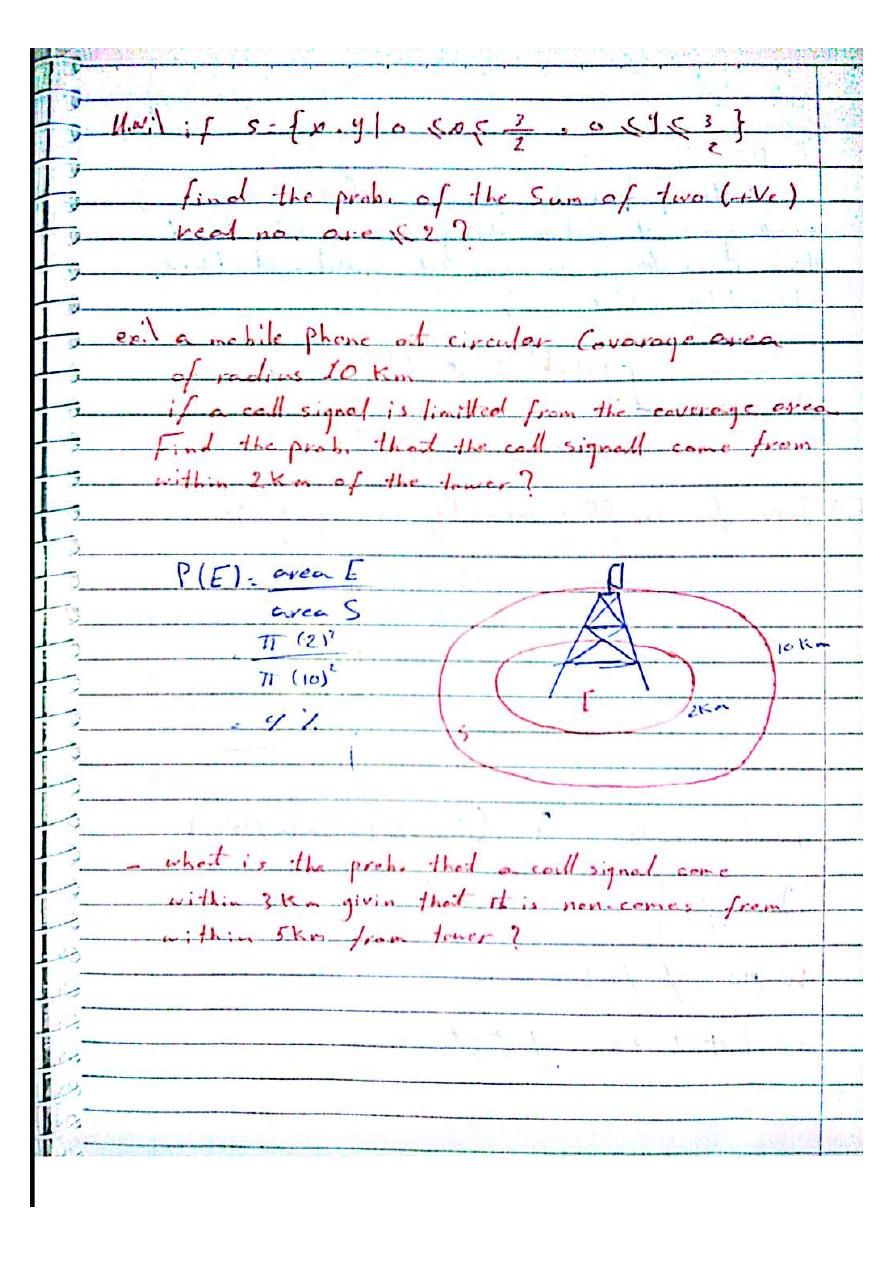 H.W:\ if S={x.y|0⩽x⩽ 3/2 , 0⩽y⩽ 3/2}
find the prob. of the Sum of two (+Ve)
real no. are ⩽ 2 ?
ex:\ a mobile phone at circular Coverage area
of radius 10 Km
if a call signal is limitted from the coverage area
Find the prob. that the call signall come from
within 2Km of the tower?
P(E) = area E
area S
π (2)²
π (10)²
= 4 %
10 Km
E
2Km
S
- what is the prob. that a call signal come
within 3Km givin that it is non-comes from
within 5Km from tower ?